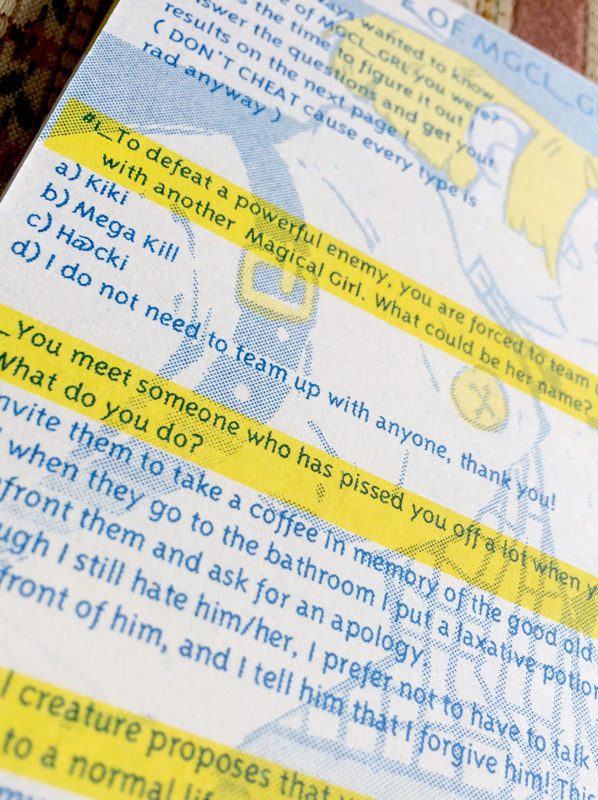 E OF MGCL_G
always wanted to know
e of MGCL_GRL you were?
s the time to figure it out
nswer the questions and get your
results on the next page!
( DON'T CHEAT cause every type is
rad anyway )
#1_To defeat a powerful enemy, you are forced to team u
with another Magical Girl. What could be her name?
a) Kiki
b) Mega Kill
c) H@cki
d) I do not need to team up with anyone, thank you!
_You meet someone who has pissed you off a lot when y
What do you do?
nvite them to take a coffee in memory of the good old
when they go to the bathroom I put a laxative potion
nfront them and ask for an apology.
ugh I still hate him/her, I prefer not to have to talk
front of him, and I tell him that I forgive him! This
l creature proposes that y
to a normal life